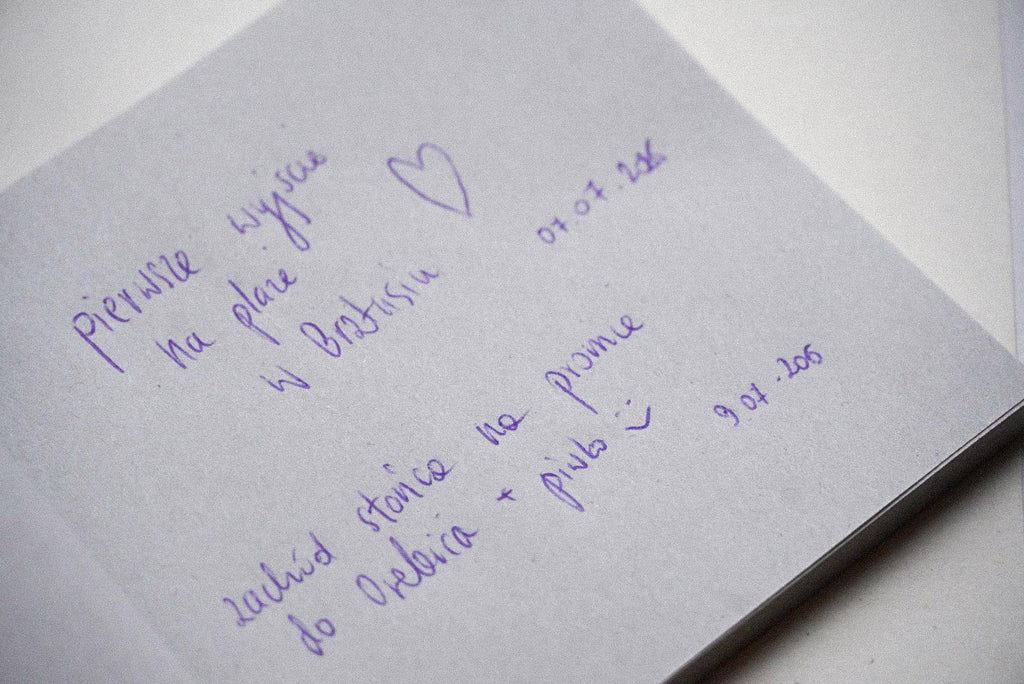 pierwsze wyjście
na plaże
w Brztusiu
07.07.2016
zachód słońca na promie
do Orebica + piwko
9.07.2016